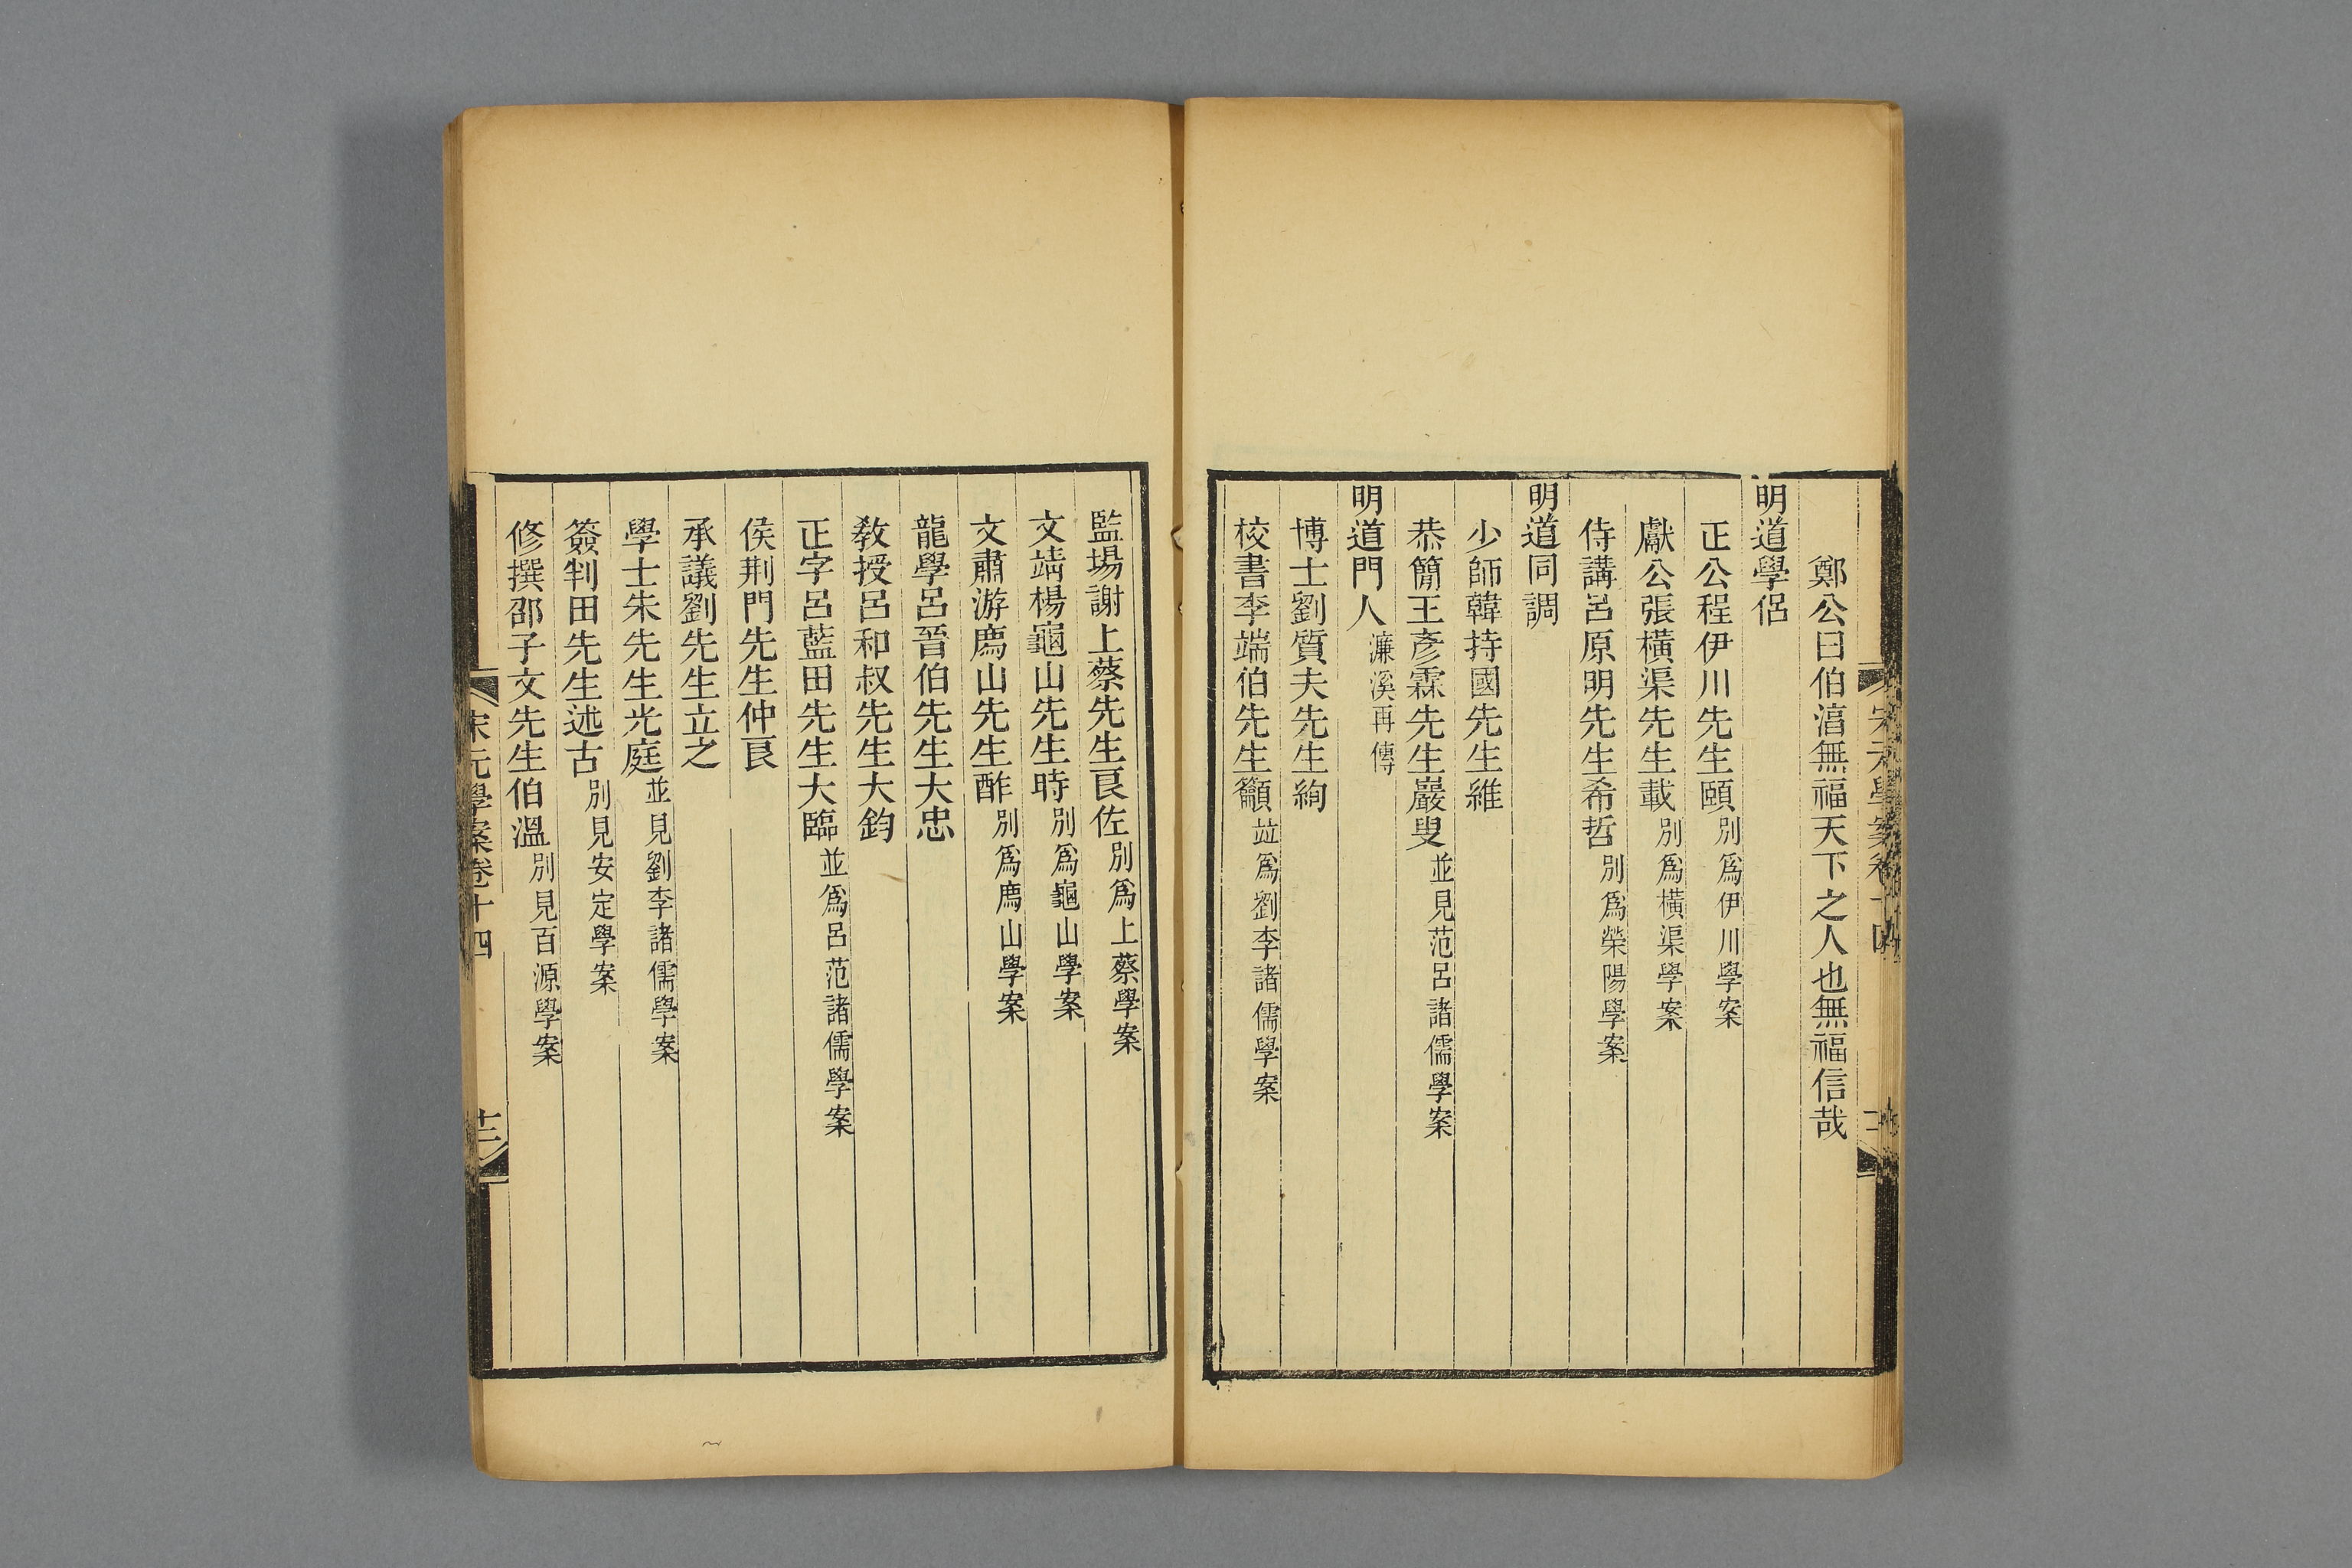 鄭公曰伯淳無福天下之人也無福信哉
明道學侶
正公程伊川先生頤別爲伊川學案
獻公張橫渠先生載別爲橫渠學案
侍講呂原明先生希哲別爲滎陽學案
明道同調
少師韓持國先生維
恭簡王彥霖先生巖叟並見范呂諸儒學案
明道門人濂溪再傳
博士劉質夫先生絢
校書李端伯先生籲並爲劉李諸儒學案
監場謝上蔡先生良佐別爲上蔡學案
文靖楊龜山先生時別爲龜山學案
文肅游廌山先生酢別爲廌山學案
龍學呂晉伯先生大忠
敎授呂和叔先生大鈞
正字呂藍田先生大臨並爲呂范諸儒學案
侯荆門先生仲良
承議劉先生立之
學士朱先生光庭並見劉李諸儒學案
簽判田先生述古別見安定學案
修撰邵子文先生伯溫別見百源學案
宋元學案卷十四